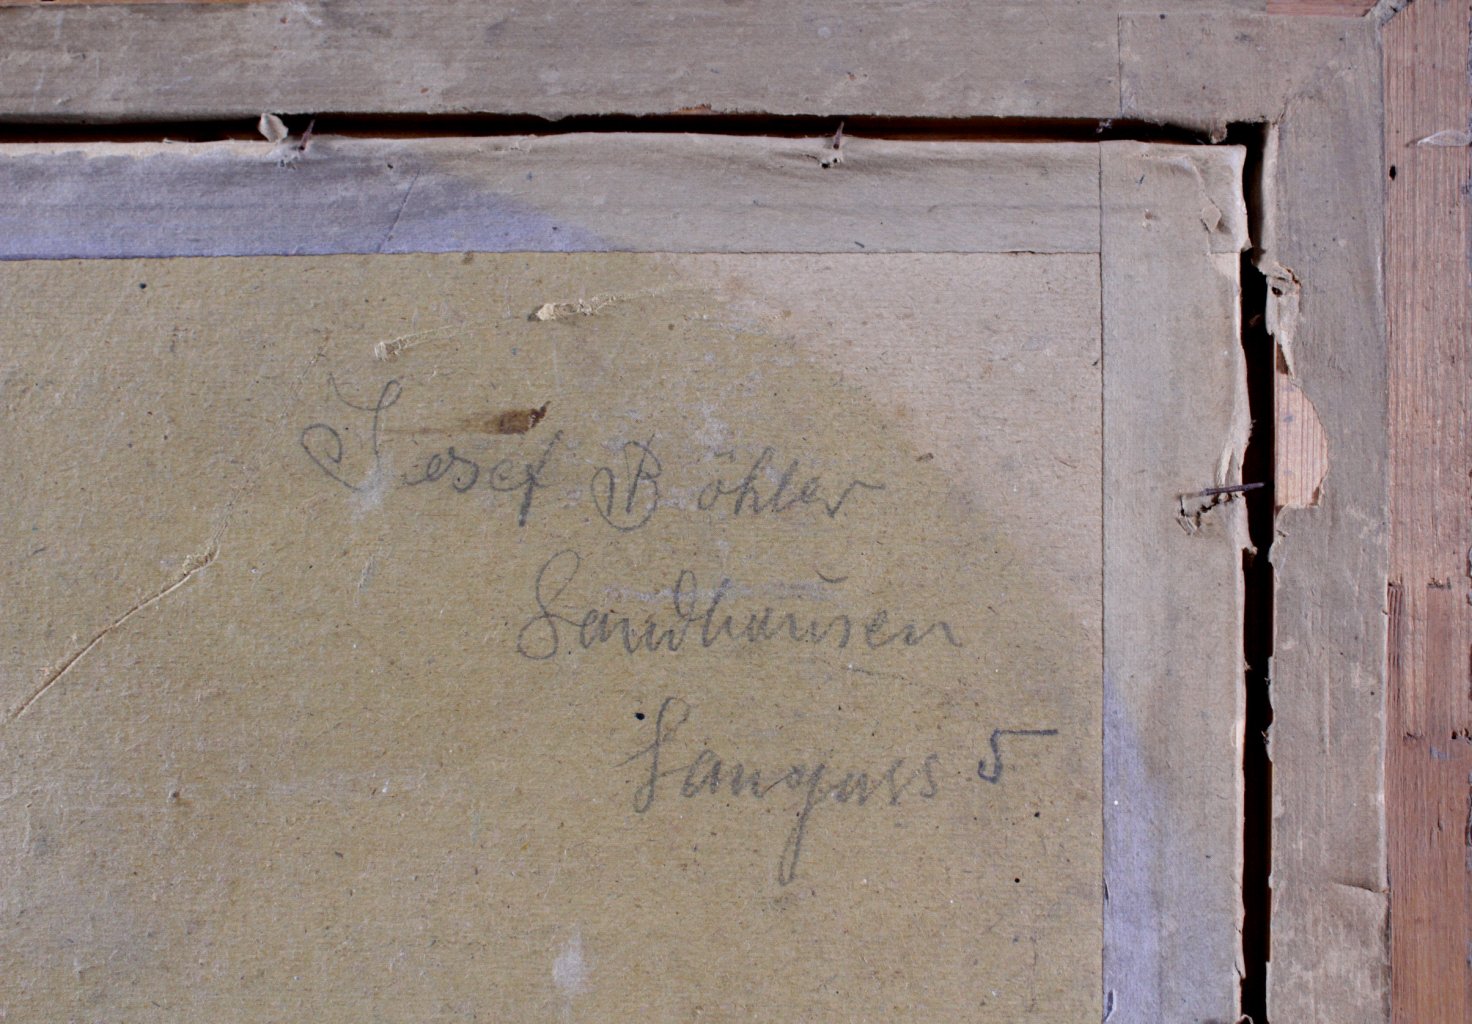 Josef Böhler
Sandhausen
Langgass 5